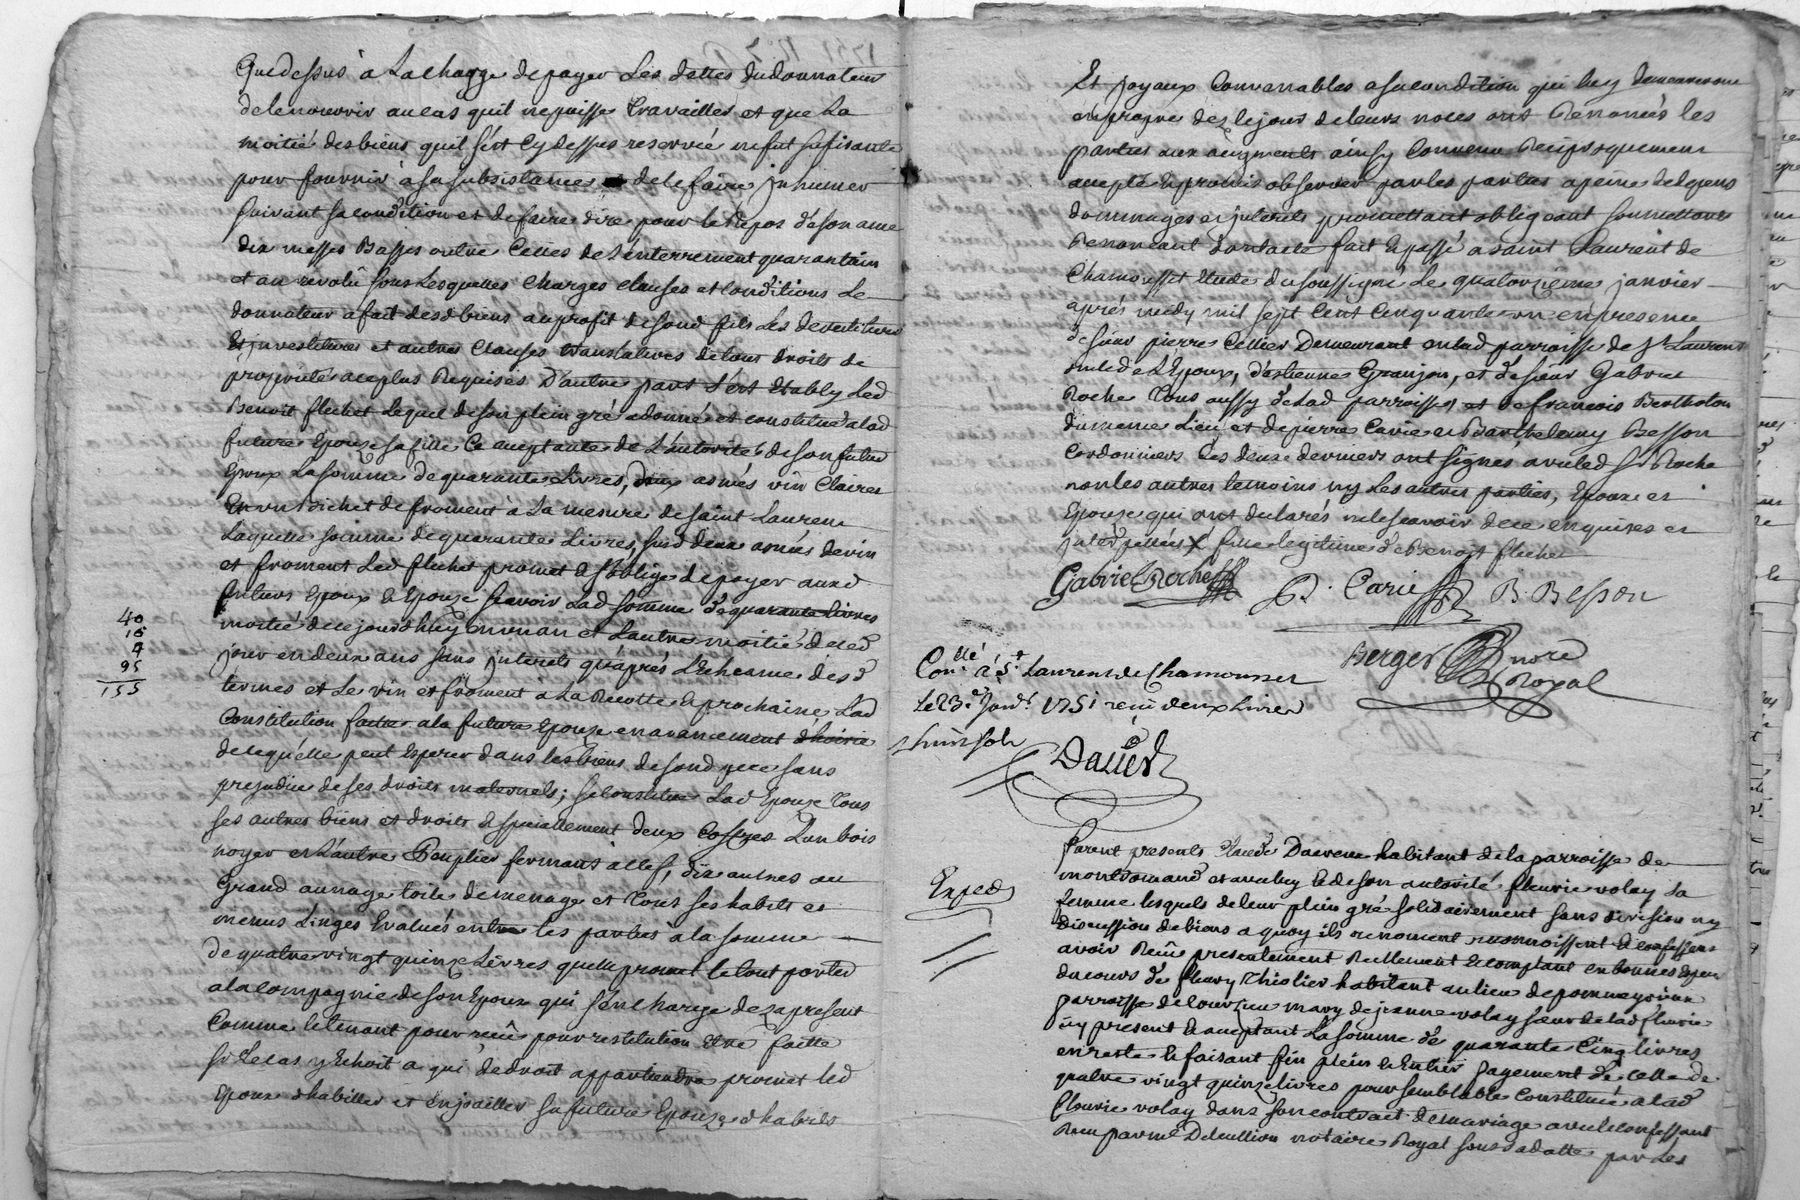 Que dessus à La charge de payer Les dettes du donnateur
de le nourrir au cas quil ne puisse travailler et que La
moitié des biens quil s'est Cy dessus reservée ne fut sufisante
pour fournir à sa subsistance de le faire jnhumer
suivant sa condition et de faire dire pour le Repos de son ame
dix messes Basses outre Celles de L'enterrement quarantain
et au revolû sous Lesquelles Charges clauses et conditions Le
donnateur a fait desd biens au profit de sond fils Les devestitures
Et jnvestitures et autres Clauses translatives de tous droits de
propriété au plus Requises D'autre part s'est Etably Led
Benoit flechet Lequel de son plein gré a donné et constitué a lad
future Epouze sa fille Ce acceptante de L'autorité de son futur
Epoux La somme de quarante Livres, deux asnés vin Clairet
Et un Bichet de froment à La mesure de saint Laurent
Laquelle somme de quarante Livres, susd deux asnées de vin
et froment Led flechet promet & s'oblige de payer auxd
futurs Epoux & Epouze scavoir Lad somme de quarante Livres
moitié de ce jourdhuy en un an et Lautre moitié de ced
jour en deux ans sans jnterets qu'aprés L'Echeance desd
termes et Le vin et froment à La Recolte prochaine Lad
Constitution faitte a la future Epouze en avancement d'hoirie
de ce qu'elle peut Esperer dans les biens de sond pere sans
prejudice de ses droits maternels; se Constitue Lad Epouze tous
ses autres biens et droits & speciallement deux Coffres L'un bois
noyer et L'autre Peuplier fermant à clef, dix autnes au
Grand aunage toile de menage et tous ses habits et
menus Linges Evalués entre les parties a la somme
de quatre vingt quinze Livres quelle promet le tout porter
a la compagnie de son Epoux qui s'en charge dez a present
Comme le tenant pour reçû pour restitution Etre faitte
si Le cas y Echoit a qui de droit appartiendra promet led
Epoux d'habiller et enjoailler sa future Epouze d'habits
40
10
95
155
Et joyaux Convenables a sa condition qui luy demeureront
en propre dez le jour de leurs noces ont Renoncés les
parties aux augments ainsy Convenu Reciproquement
accepté & promis observer par les parties a peine de depens
dommages et jnterets promettant obligeant soumettant
Renonceant dont acte fait & passé a saint Laurent de
Chamousset Etude du soussigné Le quatorzieme janvier
aprés midy mil sept Cent Cinquante un en presence
de sieur pierre Cellier Demeurant en lad parroisse de St Laurent
de L'Epoux, d'estienne Granjon, et de sieur Gabriel
Roche tous aussy de Lad parroisse et de francois Bertholon
du meme Lieu et de pierre Carie et Barthelemy Besson
Cordonniers Les deux derniers ont signés avec led Sr Roche
non les autres temoins ny Les autres parties, Epoux et
Epouze qui ont declarés ne le scavoir de ce enquises et
jnterpellées X fille legitime de Benoist flechet
Gabriel Roche P. Carie B. Besson
Berger nore
Royal
Conllé à St Laurent de Chamousset
Le 23e Janvr 1751 reçu deux Livres
huit sols
Daüier
Exped
Furent presents Claude habitant de la parroisse de
montromand et avec luy & de son autorité fleurie volay sa
femme lesquels de leur plein gré solidairement sans division ny
discussion de biens a quoy ils renoncent reconnoissent & confessent
avoir Reçû presentement Reellement & comptant en bonnes Especes
du cours de fleury Thiolier habitant au lieu de
parroisse de Courzieu mary de jeanne volay sœur de lad fleurie
cy present & acceptant La somme de quarante Cinq livres
en reste & faisant fin plein & Entier payement de celle de
quatre vingt quinze livres pour semblable Constituée a lad
fleurie volay dans son contrat de mariage avec le confessant
Recu par me Delaullion notaire Royal sous sa datte par Les